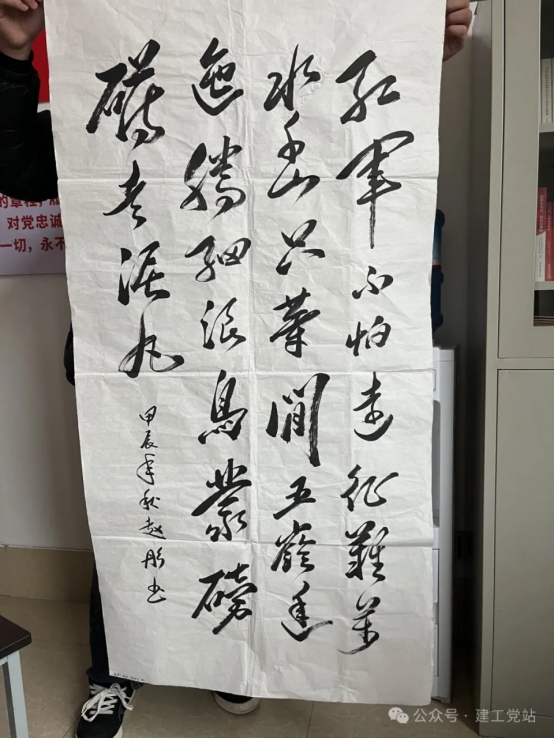 红軍不怕远征難万
水千山只等閒五嶺逶
迤腾细浪烏蒙磅
礴走泥丸
甲辰年秋赵彤书
的章程
对党忠诚
一切，永不
公众号 · 建工党站